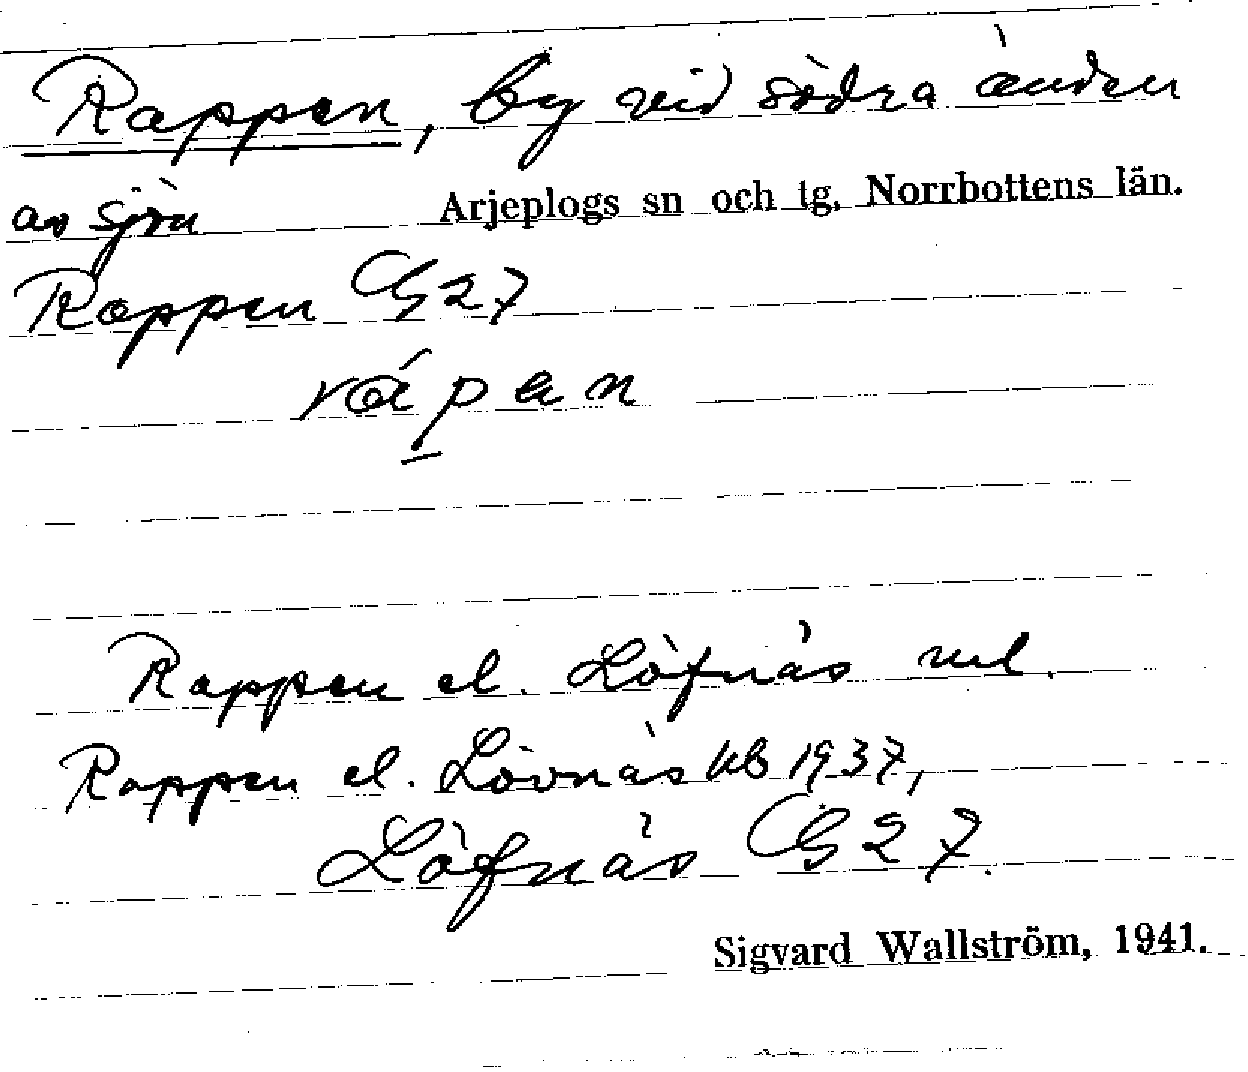 Rappen, by vid södra änden
av sjön Arjeplogs sn och tg, Norrbottens län.
Rappen G27
rápan
Rappen el. Löfnäs
Rappen el. Lövnäs kb 1937,
Löfnäs G27.
Sigvard Wallström, 1941.